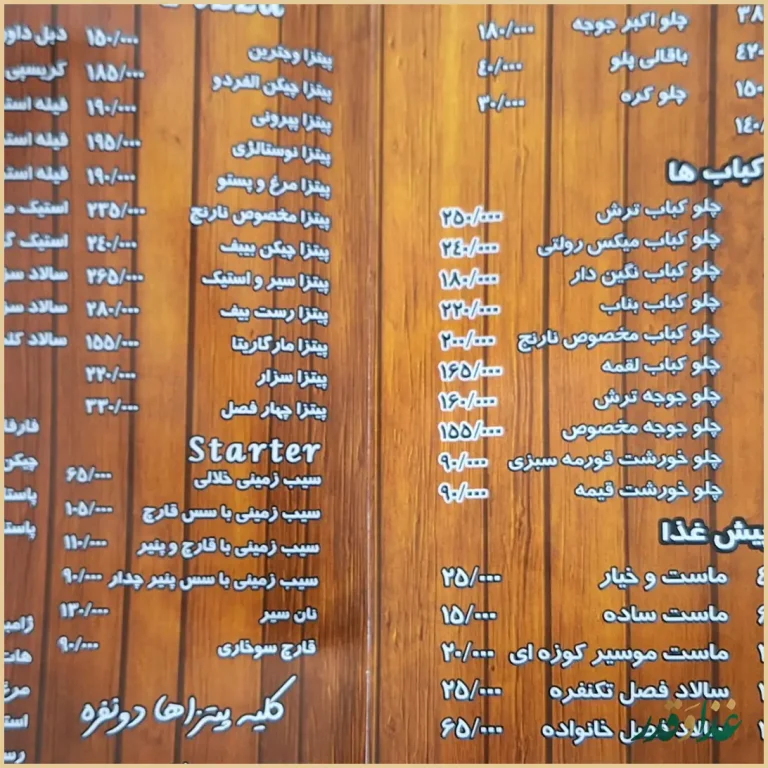 چلو اکبر جوجه ۱۸۰/۰۰۰
باقالی پلو ۴۰/۰۰۰
چلو کره ۳۰/۰۰۰
کباب ها
چلو کباب ترش ۲۵۰/۰۰۰
چلو کباب میکس رولتی ۲۴۰/۰۰۰
چلو کباب نگین دار ۱۸۰/۰۰۰
چلو کباب بناب ۲۲۰/۰۰۰
چلو کباب مخصوص نارنج ۲۰۰/۰۰۰
چلو کباب لقمه ۱۶۵/۰۰۰
چلو جوجه ترش ۱۶۰/۰۰۰
چلو جوجه مخصوص ۱۵۵/۰۰۰
چلو خورشت قورمه سبزی ۹۰/۰۰۰
چلو خورشت قیمه ۹۰/۰۰۰
پیش غذا
ماست و خیار ۲۵/۰۰۰
ماست ساده ۱۵/۰۰۰
ماست موسیر کوزه ای ۲۰/۰۰۰
سالاد فصل تکنفره ۲۵/۰۰۰
سالاد فصل خانواده ۶۵/۰۰۰
پیتزا وجترین ۱۵۰/۰۰۰
پیتزا چیکن الفردو ۱۸۵/۰۰۰
پیتزا پپرونی ۱۹۰/۰۰۰
پیتزا نوستالژی ۱۹۵/۰۰۰
پیتزا مرغ و پستو ۱۹۰/۰۰۰
پیتزا مخصوص نارنج ۲۳۵/۰۰۰
پیتزا چیکن بیف ۲۴۰/۰۰۰
پیتزا سیر و استیک ۲۶۵/۰۰۰
پیتزا رست بیف ۲۸۰/۰۰۰
پیتزا مارگاریتا ۱۵۵/۰۰۰
پیتزا سزار ۲۲۰/۰۰۰
پیتزا چهار فصل ۳۳۰/۰۰۰
Starter
سیب زمینی خلالی ۶۵/۰۰۰
سیب زمینی با سس قارچ ۱۰۵/۰۰۰
سیب زمینی با قارچ و پنیر ۱۱۰/۰۰۰
سیب زمینی با سس پنیر چدار ۹۰/۰۰۰
نان سیر ۱۳۰/۰۰۰
قارچ سوخاری ۹۰/۰۰۰
کلیه پیتزاها دونفره
گریسپی
فیله
فیله
فیله
استیک
استیک
سالاد
سالاد
سالاد
چیکن